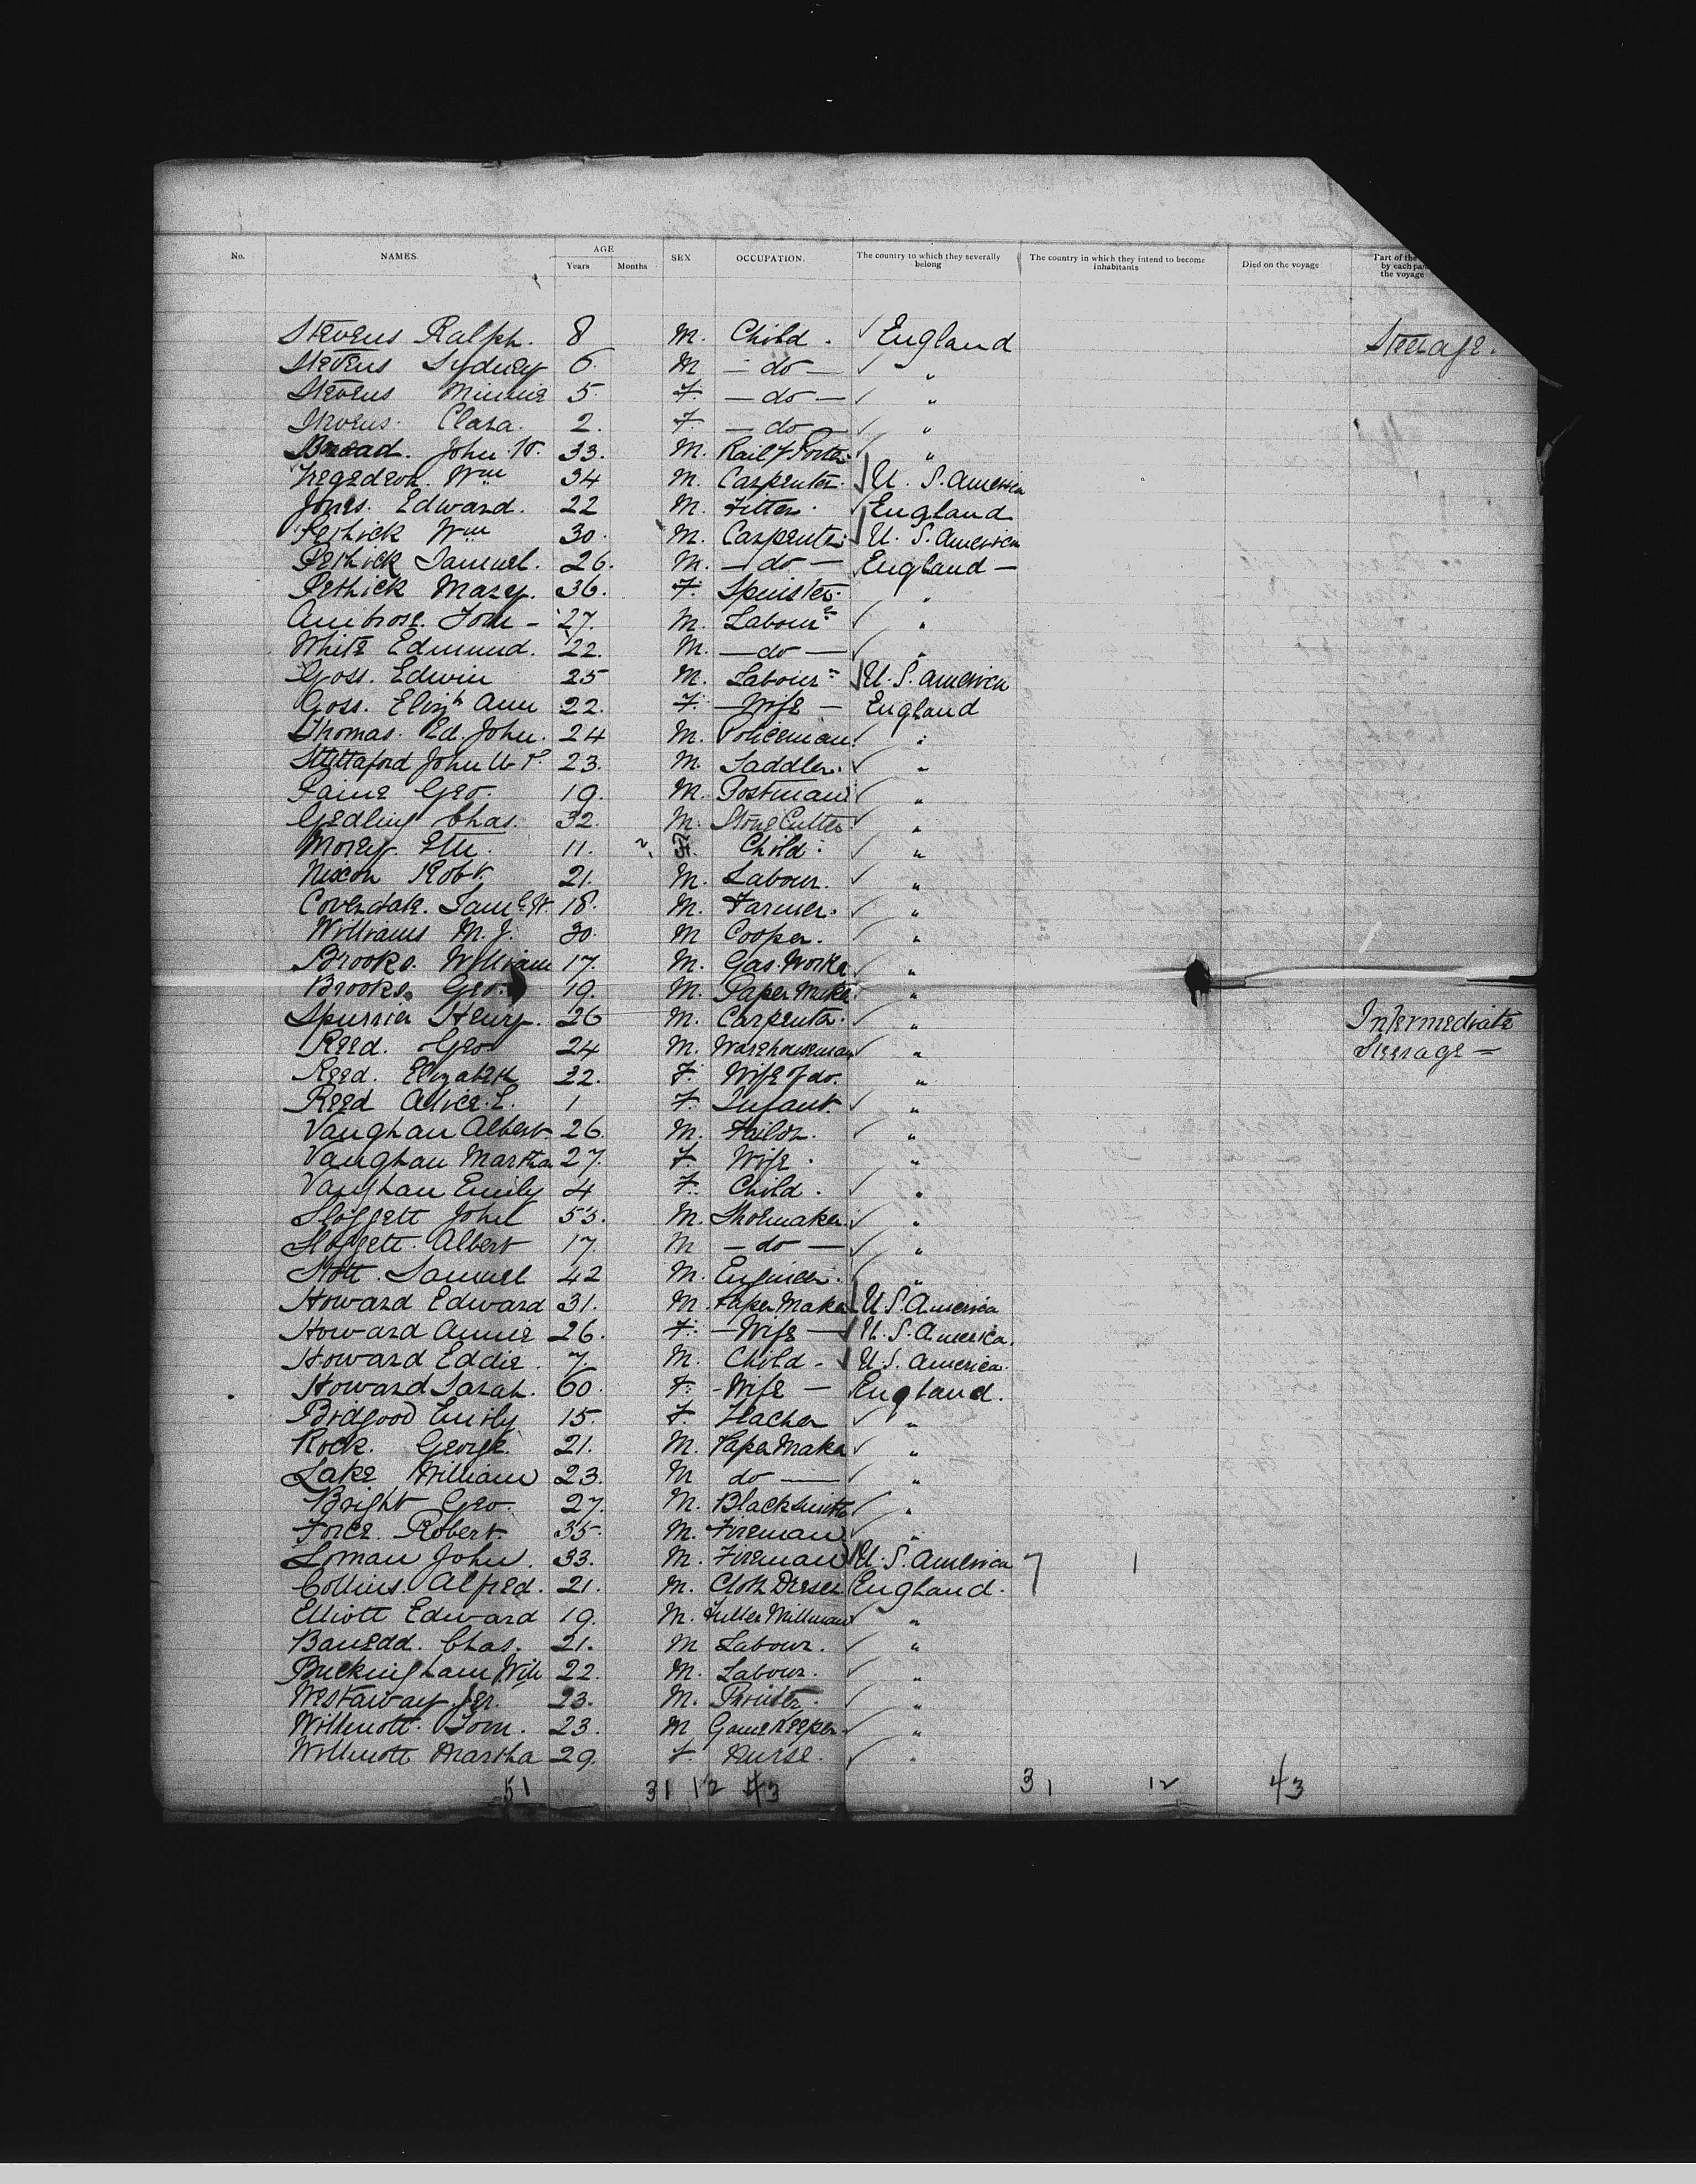 No. NAMES. AGE Years Months SEX OCCUPATION. The country to which they severally belong The country in which they intend to become inhabitants Died on the voyage Part of the by each pas the voyage
Stevens Ralph. 8 M. Child. ✓ England Steerage.
Stevens Sydney 6. M — do — ✓ "
Stevens Minnie 5. F. — do — ✓ "
Stevens. Clara. 2. F. — do — ✓ "
Broad. John W. 33. M. Rail Porter ✓ "
Wm 34 M. Carpenter. U. S. America
Jones. Edward. 22 M. Fitter. ✓ England
Pethick Wm 30. M. Carpenter U. S. America
Pethick Samuel. 26. M. — do — England —
Pethick Mary. 36. F. Spinster. "
Ambrose. Tom - 27. M. Labourr ✓ "
White Edmund. 22. M. — do — ✓ "
Goss. Edwin 25 M. Labourr U. S. America
Goss. Elizh Ann 22. F. — Wife — England
Thomas. Ed. John. 24 M. Policeman ✓ "
John 23. M. Saddler. ✓ "
Paine Geo. 19. M. Postman ✓ "
Gedling Chas. 32. M. Stone Cutter ✓ "
Morey. 11. Child. ✓ "
Nixon Robt. 21. M. Labour. ✓ "
Coverdale. Saml W. 18. M. Farmer. ✓ "
Williams M. J. 30. M Cooper. ✓ "
Brooks. William 17. M. Gas Works ✓ "
Brooks. Geo. 19. M. Paper Maker "
Spurrier Henry. 26 M. Carpenter. ✓ " Intermediate
Reed. Geo 24 M. Warehouseman ✓ " Steerage =
Reed. Elizabeth 22. F. Wife of do. "
Reed Alice. L. 1 F. Infant. ✓ "
Vaughan Albert. 26. M. Tailor. ✓ "
Vaughan Martha 27. F. Wife. "
Vaughan Emily 4 F. Child. ✓ "
Sloggett John 53. M. Shoemaker ✓ "
Sloggett. Albert 17. M — do — ✓ "
Stott. Samuel 42 M. Engineer. ✓ "
Howard Edward 31. M. Paper Maker U. S. America
Howard Annie 26. F. — Wife — ✓ U. S. America.
Howard Eddie. 7. M. Child - ✓ U. S. America.
Howard Sarah. 60. F. - Wife — England.
Bidgood Emily 15. F. Teacher ✓ "
Rock. George. 21. M. Paper Maker ✓ "
Lake William 23. M do — ✓ "
Bright Geo. 27. M. Blacksmith ✓ "
Force. Robert. 35. M. Fireman ✓ "
Loman John. 33. M. Fireman U. S. America 7 1
Collins. Alfred. 21. M. Cloth Dresser England.
Elliott Edward 19. M. Fuller Millman ✓ "
Chas. 21. M Labour. ✓ "
Buckingham Wm 22. M. Labour. ✓ "
Westaway. 23. M. Printer. ✓ "
Willmott. Tom. 23. M Game Keeper. ✓ "
Willmott Martha 29. F. Nurse. ✓ "
51 31 12 43 31 12 43